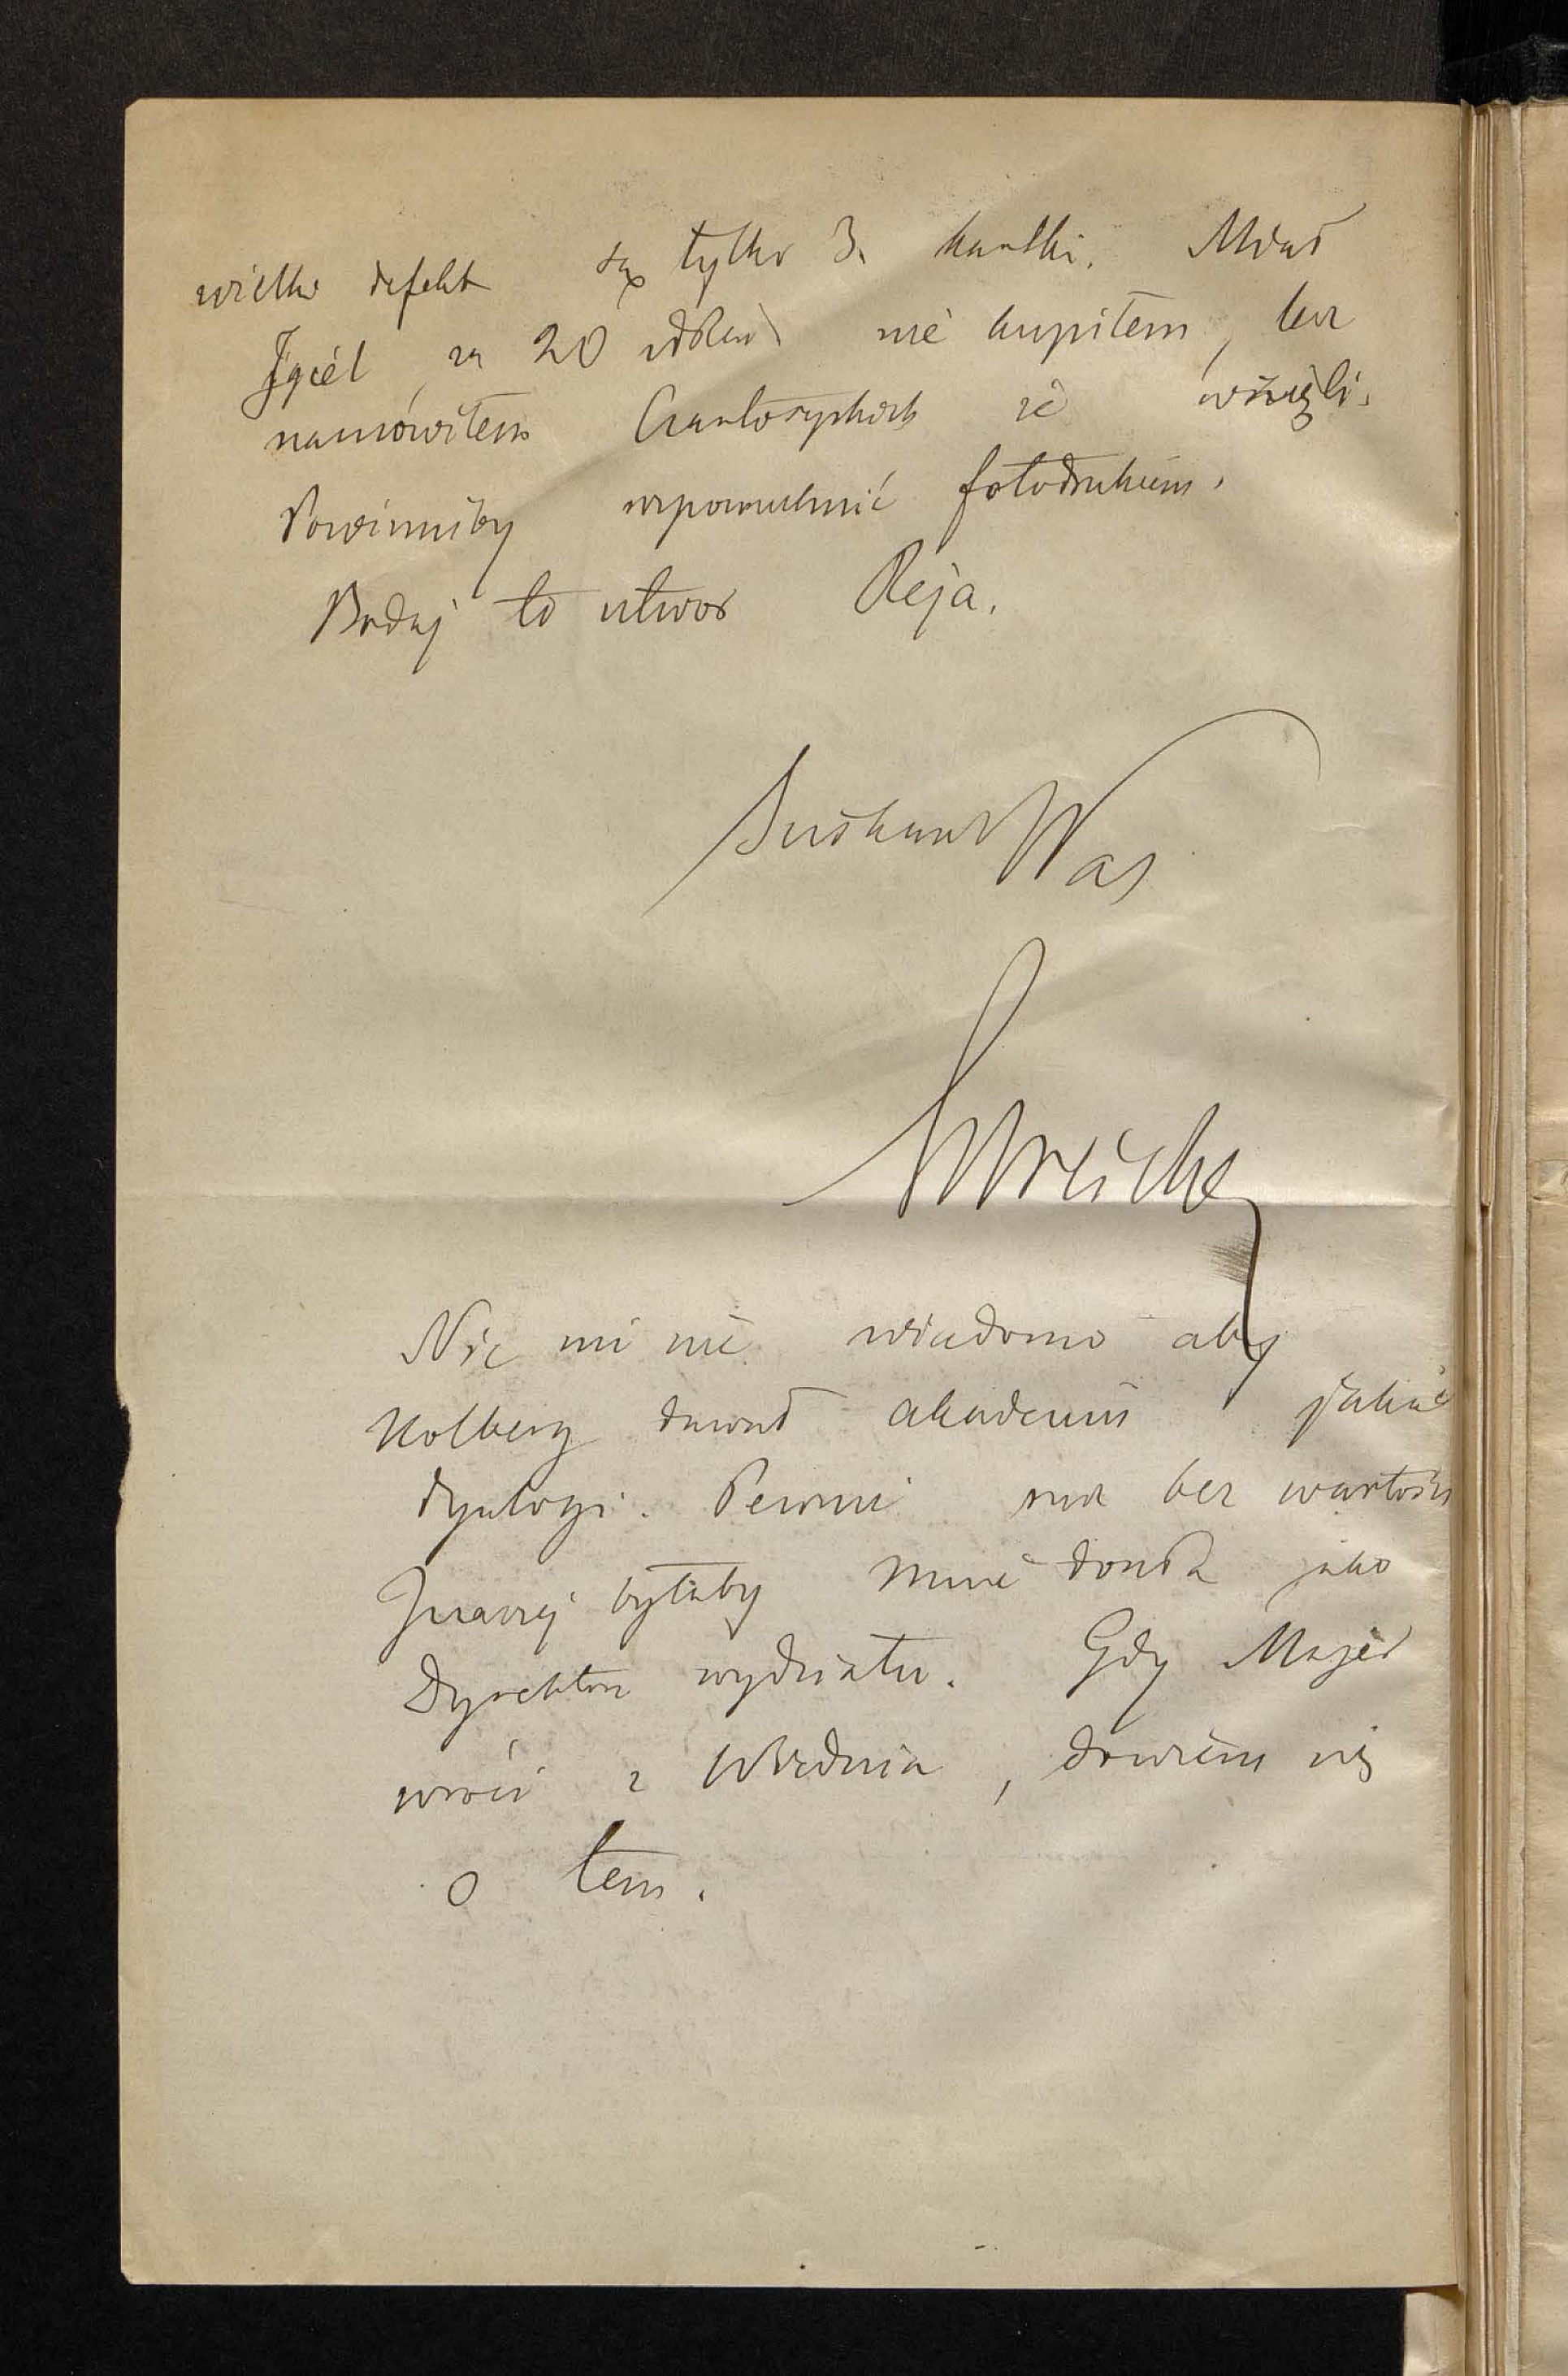 wielki defekt są tylko 3. kartki. Miał
Igiel za 20 złr nie kupiłem, lecz
namówiłem Czartoryskich że wzięli.
Powinniby wspomnieć fotodrukiem.
Bodaj to utwor Reja.
Sciskam Was
Estreicher
Nic mi nie wiadomo aby
Kolberg dawał akademii jakieś
dyalogi. Pewnie rzecz bez wartości
Inaczej byłaby mnie doszła jako
Dyrektora wydziału. Gdy Majer
wróci z Wiednia, dowiem się
o tem.